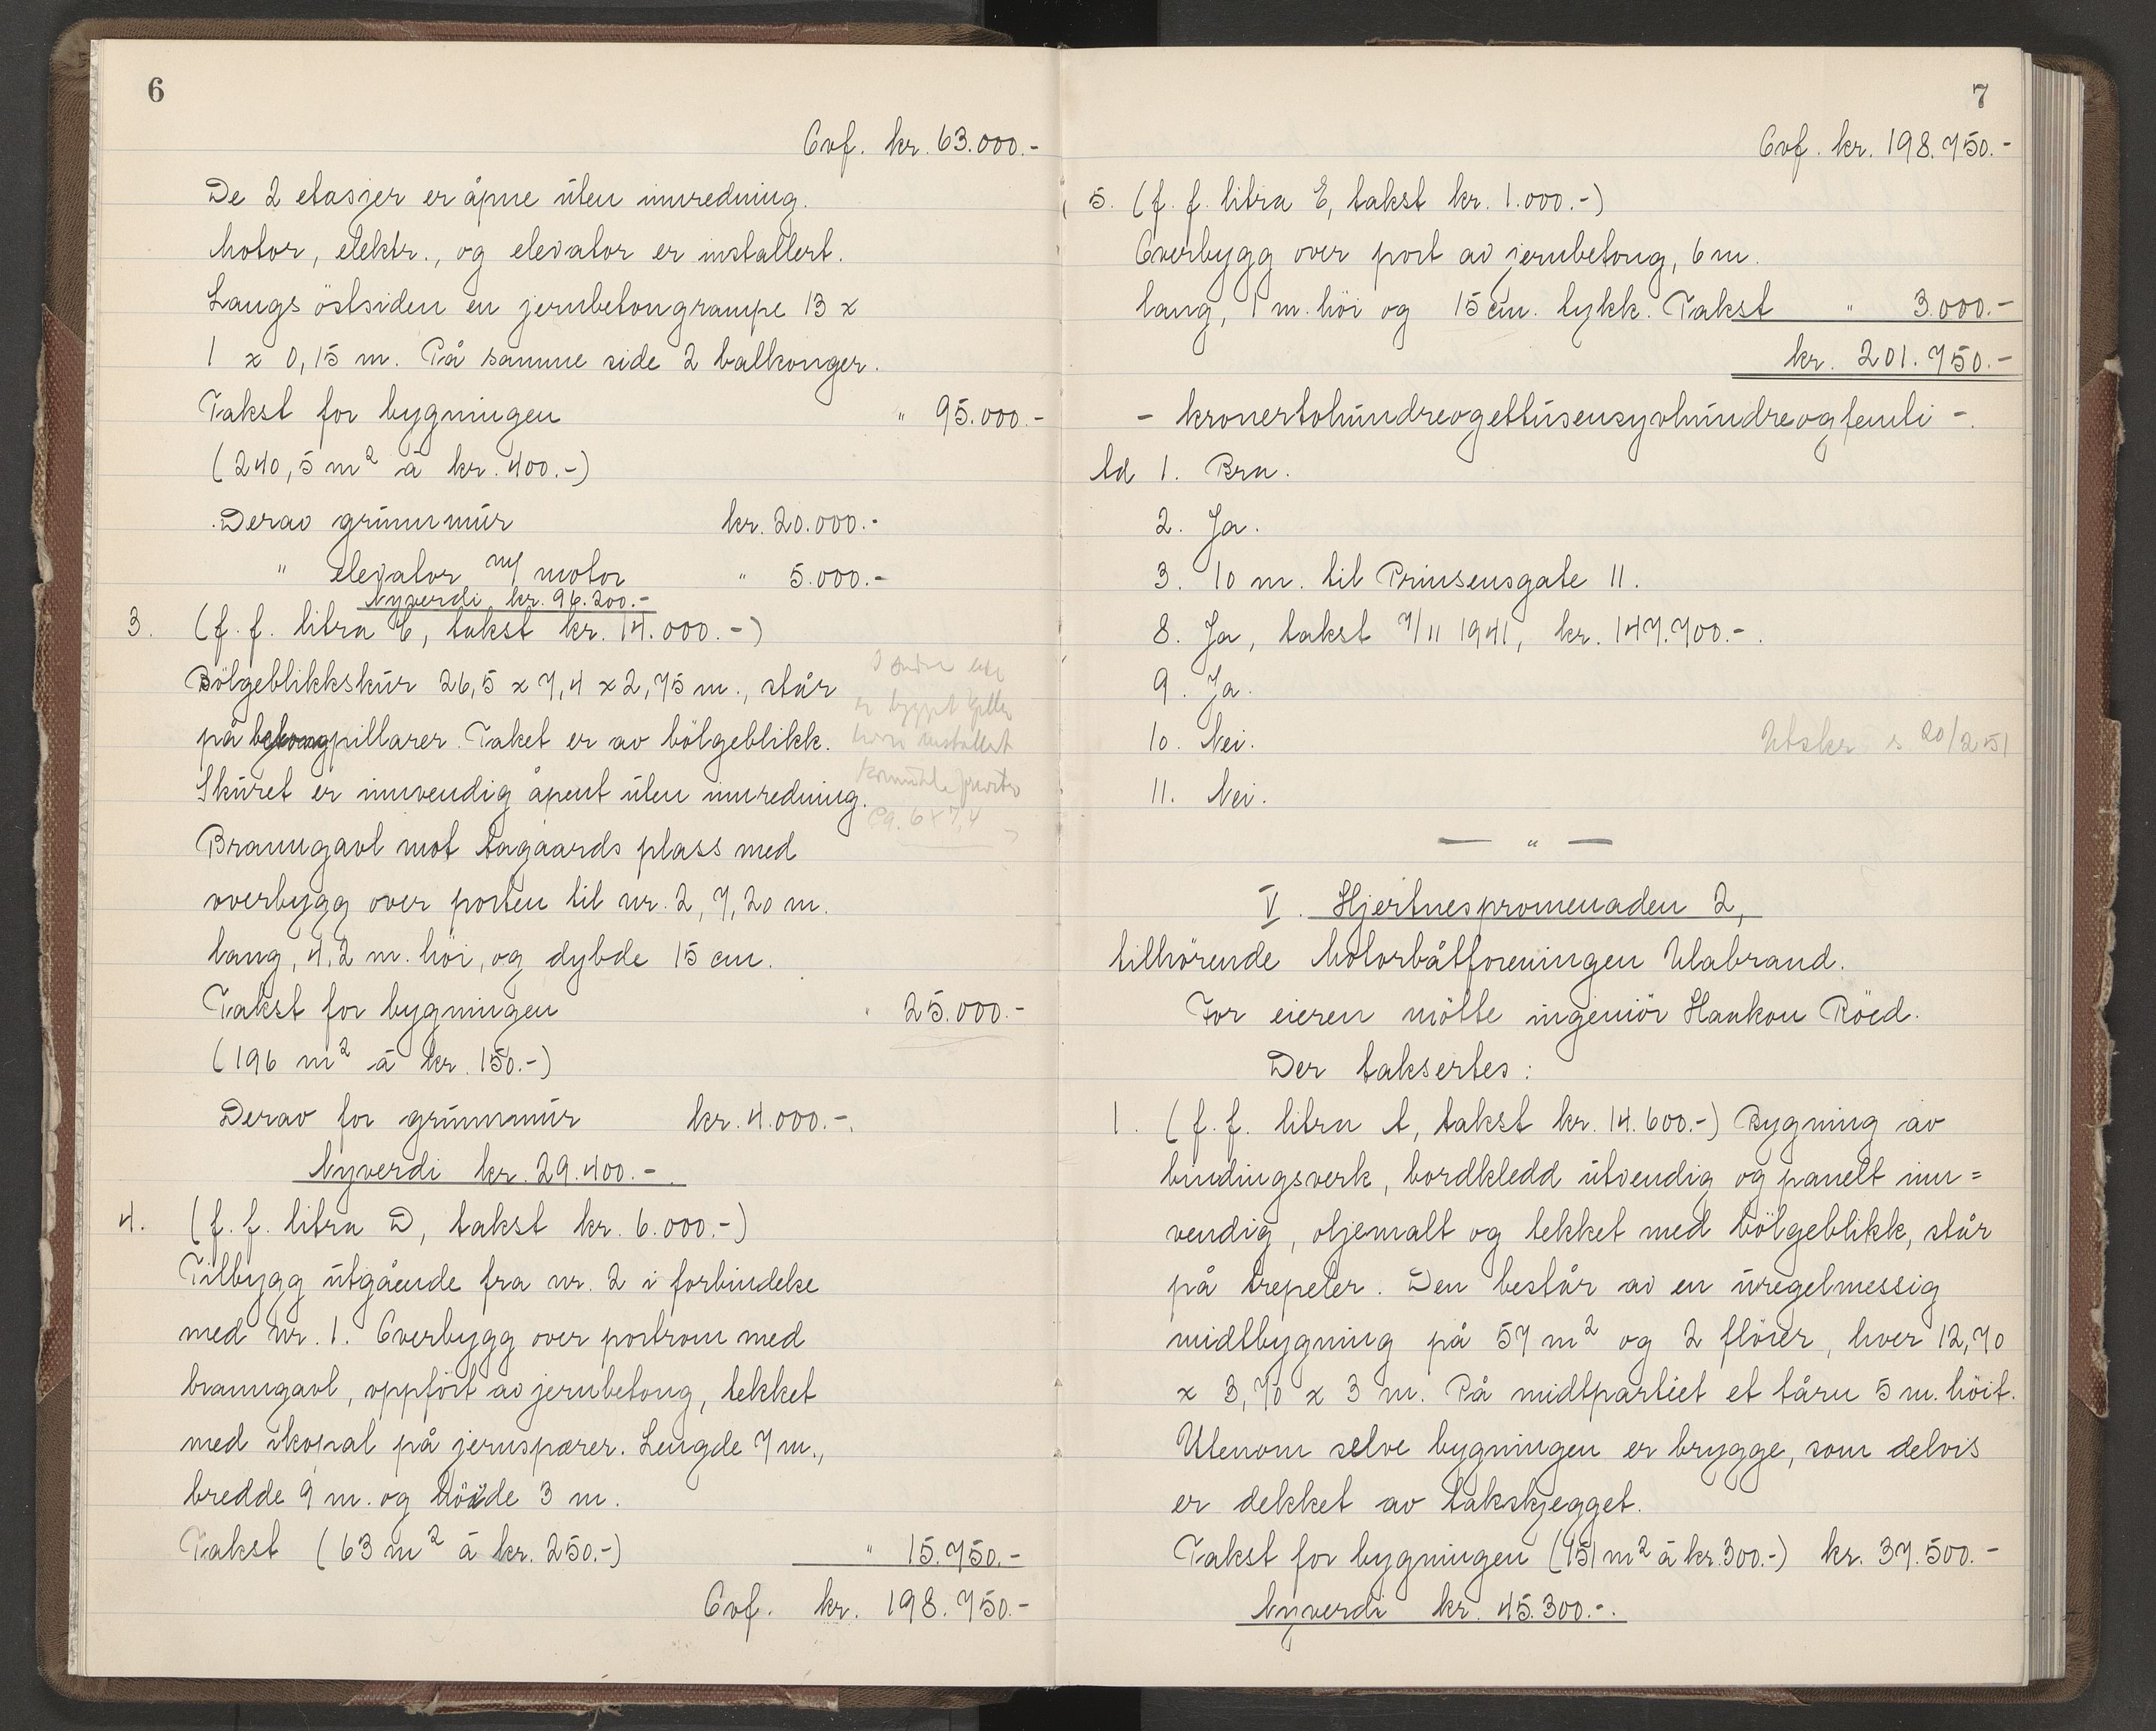 6
Ovf. kr. 63.000.-
De 2 etasjer er åpne uten innredning.
Motor, elektr., og elevator er installert.
Langs östsiden en jernbetongrampe 13 x
1 x 0,15 m. På samme side 2 balkonger.
Takst for bygningen " 95.000.-
(240,5 m² à kr. 400.-)
Derav grunnmur kr. 20.000.-
" elevator m/ motor " 5.000.-
Nyverdi kr. 96.200.-
3. (f. f. litra C, takst kr. 14.000.-)
Bölgeblikkskur 26,5 x 7,4 x 2,75 m., står
på betongpillarer. Taket er av bölgeblikk.
Skuret er innvendig åpent uten innredning.
er bygget
installert
Ca. 6 x 7,4
Branngavl mot Aagaards plass med
overbygg over porten til nr. 2, 7,20 m.
lang, 4,2 m. höi, og dybde 15 cm.
Takst for bygningen " 25.000.-
(196 m² à kr. 150.-)
Derav for grunnmur kr. 4.000.-.
Nyverdi kr. 29.400.-
4. (f. f. litra D, takst kr. 6.000.-)
Tilbygg utgående fra nr. 2 i forbindelse
med nr. 1. Overbygg over portrom med
branngavl, oppfört av jernbetong, tekket
med ikopal på jernsparer. Lengde 7 m.,
bredde 9 m. og höide 3 m.
Takst (63 m² à kr. 250.-) " 15.750.-
Ovf. kr. 198.750.-
7
Ovf. kr. 198.750.-
5. (f. f. litra E, takst kr. 1.000.-)
Overbygg over port av jernbetong, 6 m.
lang, 1 m. höi og 15 cm. tykk. Takst " 3.000.-
kr. 201.750.-
- kronertohundreogettusensyvhundreogfemti -.
Ad 1. Bra.
2. Ja.
3. 10 m. til Prinsensgate 11.
8. Ja, takst 7/11 1941, kr. 147.700.-.
9. Ja.
10. Nei.
Utskr s 20/2 51
11. Nei.
— " —
V. Hjertnespromenaden 2,
tilhörende Motorbåtforeningen Ulabrand.
For eieren mötte ingeniör Haakon Röed.
Der taksertes:
1. (f. f. litra A, takst kr. 14.600.-) Bygning av
bindingsverk, bordkledd utvendig og panelt inn=
vendig, oljemalt og tekket med bölgeblikk, står
på trepeler. Den består av en uregelmessig
midtbygning på 57 m² og 2 flöier, hver 12,70
x 3,70 x 3 m. På midtpartiet et tårn 5 m. höit.
Utenom selve bygningen er brygge, som delvis
er dekket av takskjegget.
Takst for bygningen (151 m² à kr. 300.-) kr. 37.500.-
Nyverdi kr. 45.300.-.